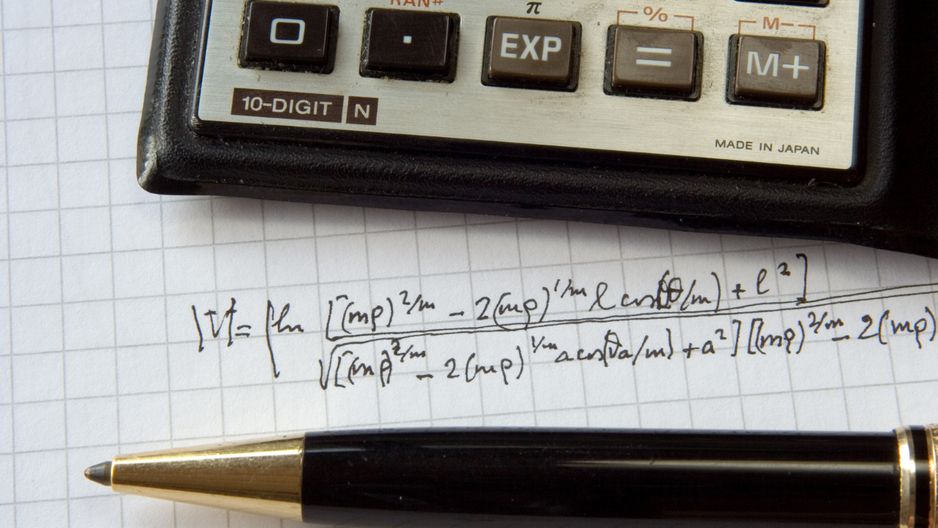 RAN#
π
%
M−
0 . EXP = M+
10-DIGIT N
MADE IN JAPAN
|V|= |ln [(mρ)^2/m − 2(mρ)^1/m l cos(θ/m) + l^2]
√[(mρ)^2/m − 2(mρ)^1/m a cos( a/m) + a^2] [(mρ)^2/m − 2(mρ)